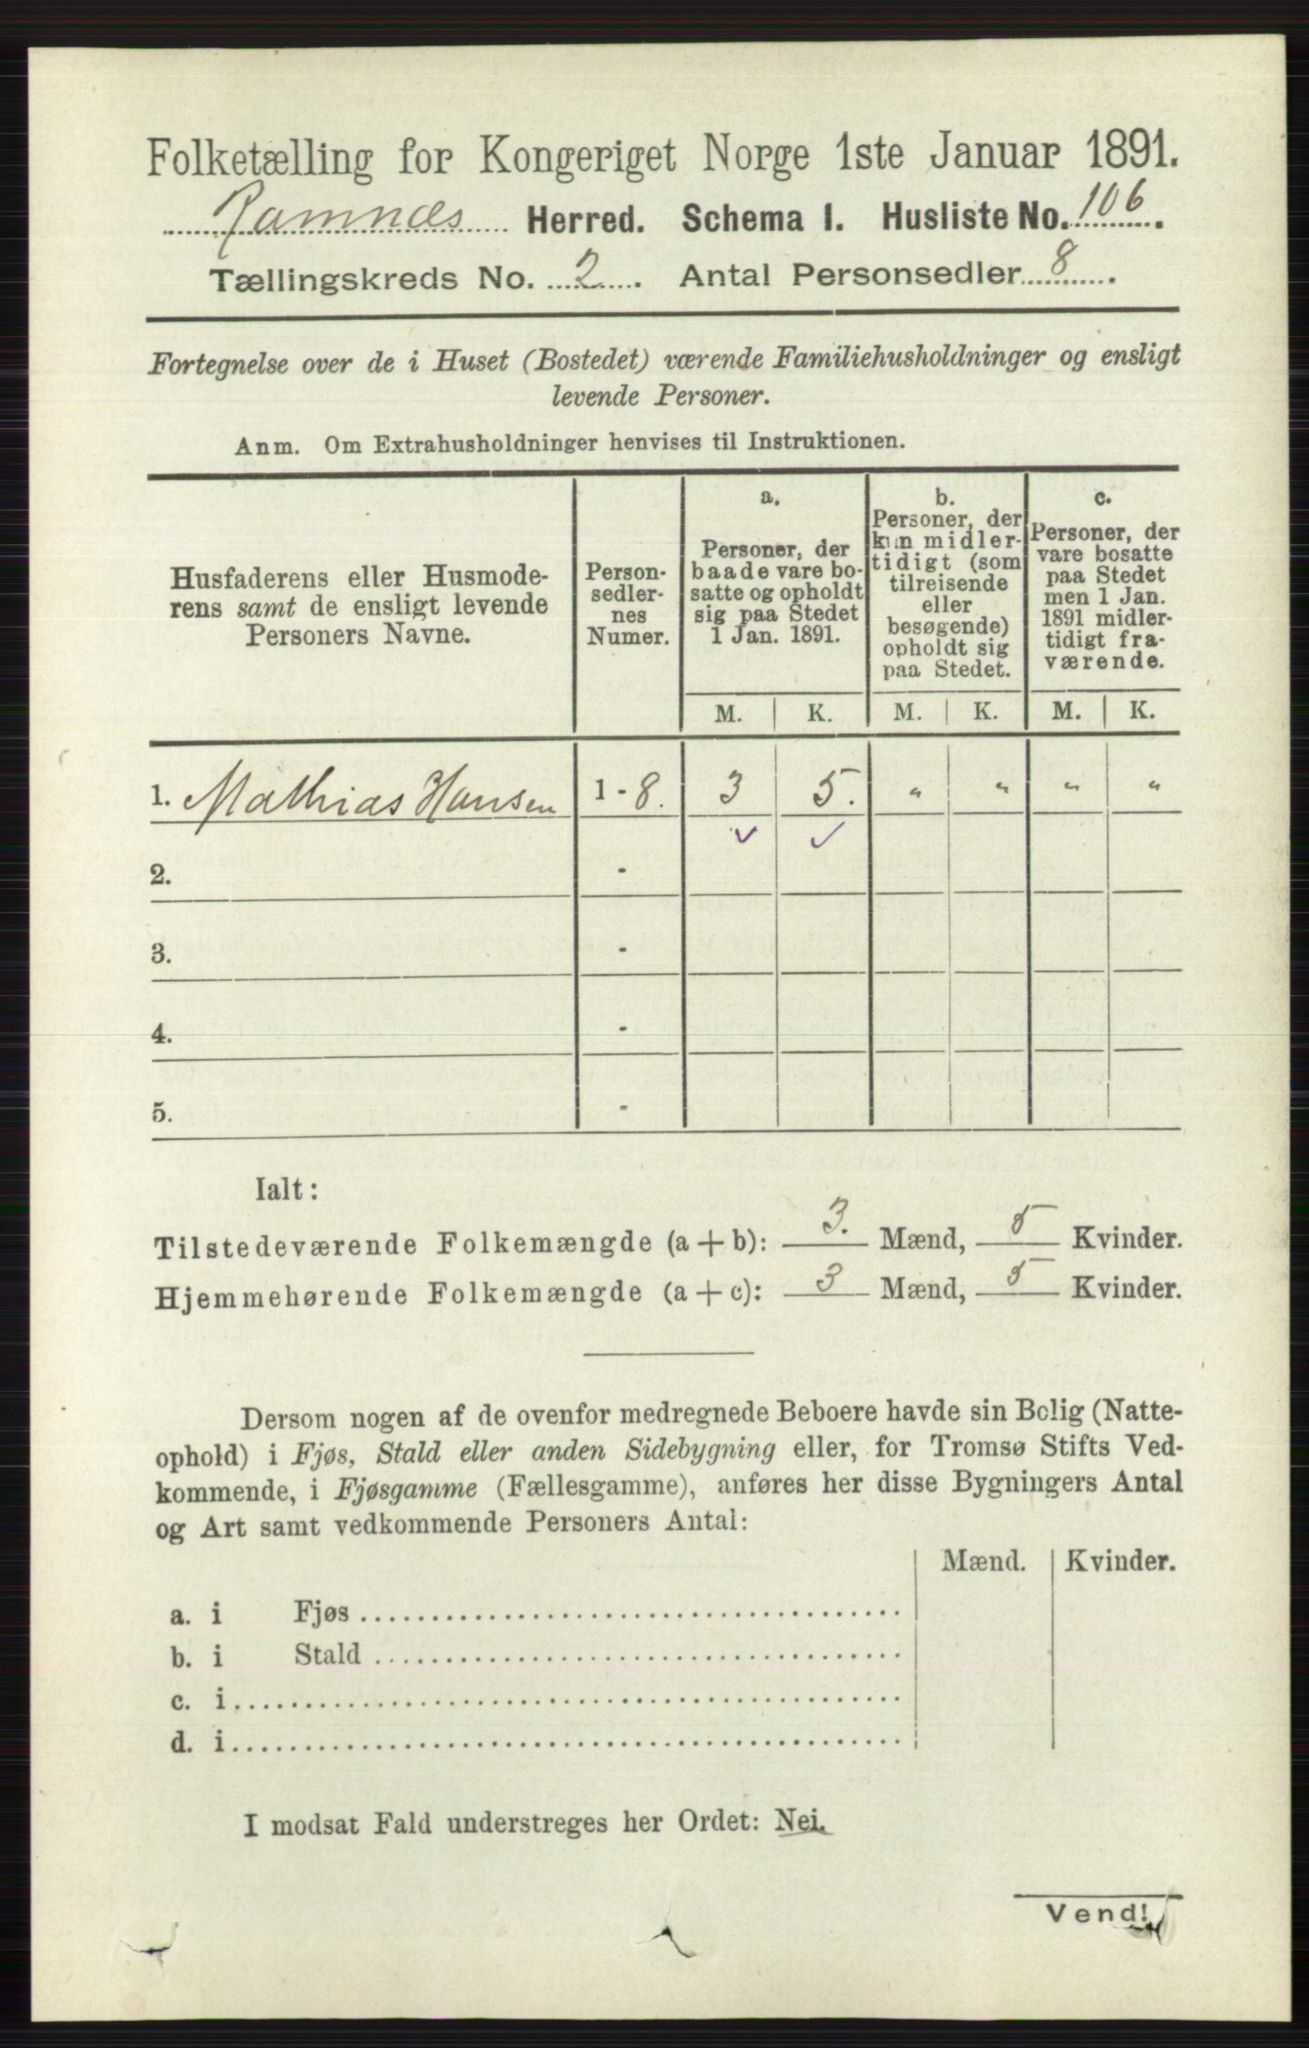 Folketælling for Kongeriget Norge 1ste Januar 1891.
Ramnæs Herred. Schema I. Husliste No. 106.
Tællingskreds No. 2. Antal Personsedler 8.
Fortegnelse over de i Huset (Bostedet) værende Familiehusholdninger og ensligt
levende Personer.
Anm. Om Extrahusholdninger henvises til Instruktionen.
Husfaderens eller Husmode-
rens samt de ensligt levende
Personers Navne.
Person-
sedler-
nes
Numer.
a.
Personer, der
baade vare bo-
satte og opholdt
sig paa Stedet
1 Jan. 1891.
b.
Personer, der
kun midler-
tidigt (som
tilreisende
eller
besøgende)
opholdt sig
paa Stedet.
c.
Personer, der
vare bosatte
paa Stedet
men 1 Jan.
1891 midler-
tidigt fra-
værende.
M. K. M. K. M. K.
1. Mathias Hansen 1 - 8. 3 5. " " " "
2. -
3. -
4. -
5. -
Ialt:
Tilstedeværende Folkemængde (a + b): 3. Mænd, 5 Kvinder.
Hjemmehørende Folkemængde (a + c): 3 Mænd, 5 Kvinder.
Dersom nogen af de ovenfor medregnede Beboere havde sin Bolig (Natte-
ophold) i Fjøs, Stald eller anden Sidebygning eller, for Tromsø Stifts Ved-
kommende, i Fjøsgamme (Fællesgamme), anføres her disse Bygningers Antal
og Art samt vedkommende Personers Antal:
Mænd. Kvinder.
a. i Fjøs
b. i Stald
c. i
d. i
I modsat Fald understreges her Ordet: Nei.
Vend!